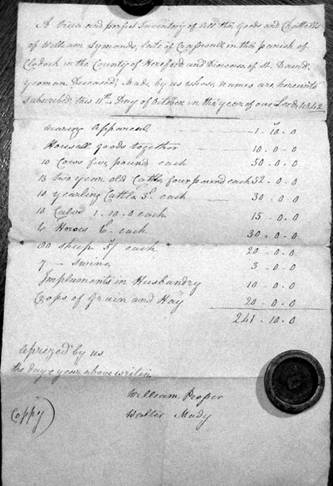 A True and perfect Inventory of All the Goods and Chattells
of William Symonds, late of in the parish of
Clodock in the County of Hereford and Diocess of St David,
yeoman Deceased, Made by us whose Names are herewith
subscribed this 11th Day of October in the year of our Lord
wearing Apparell 1 - 10 - 0
Houshall goods together 10 - 0 - 0
10 Cows five pounds each 50 - 0 - 0
13 two year old Cattle four pound each 52 - 0 - 0
10 yearling Cattle 3£ each 30 - 0 - 0
10 Calves 1 - 10 - 0 each 15 - 0 - 0
Horses each 30 - 0 - 0
sheep each 20 - 0 - 0
7 Swine 3 - 0 - 0
Impliments in Husbandry 10 - 0 - 0
Crops of Grain and Hay 20 - 0 - 0
241 - 10 - 0
Aprized by us
the day & year above writen
William Prosser
Walter Mady
(Coppy)